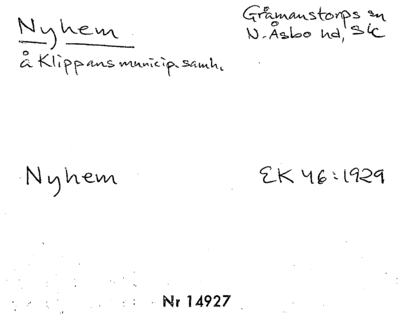 Nyhem
Gråmanstorps sn
N. Åsbo hd, Sk
å Klippans municip. samh.
Nyhem
EK 46:1929
Nr 14927